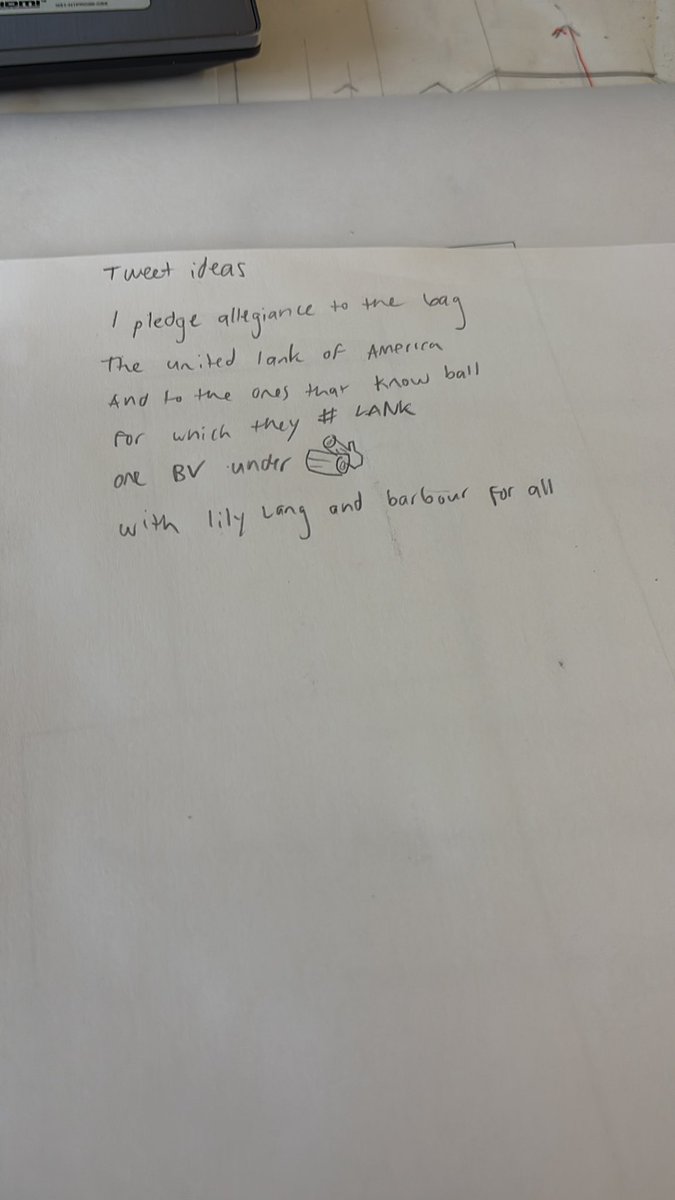 HDMI
Tweet ideas
I pledge allegiance to the bag
The united lank of America
And to the ones that know ball
For which they # LANK
one BV under
with lily Lang and barbour for all